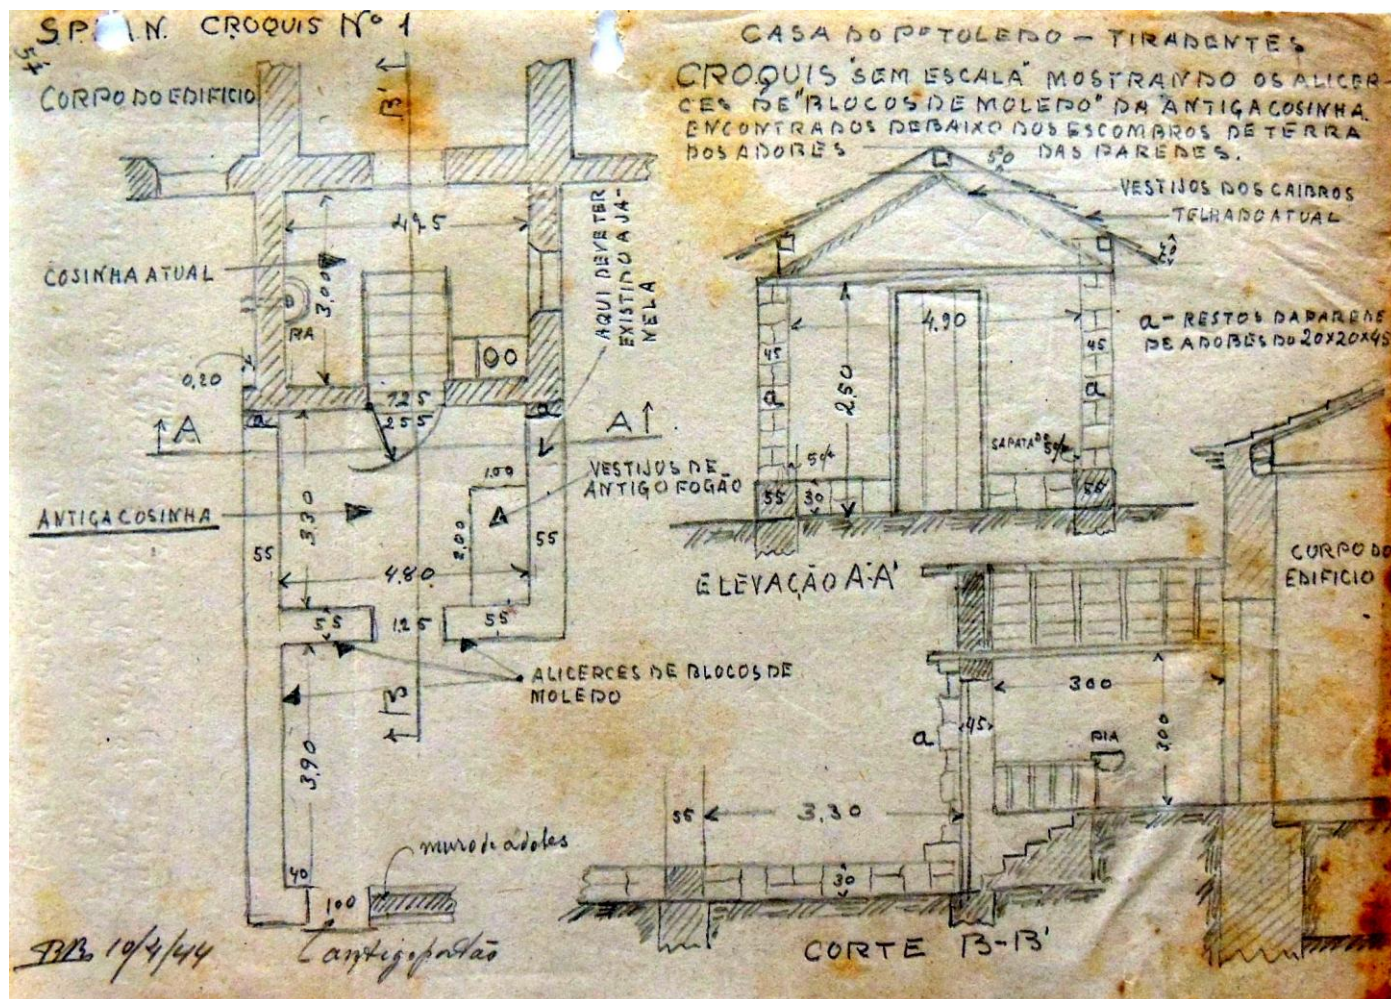 S.P. A.N. CROQUIS Nº 1
57
CASA DO Pe TOLEDO - TIRADENTES
CROQUIS "SEM ESCALA" MOSTRANDO OS ALICER-
CES DE "BLOCOS DE MOLEDO" DA ANTIGA COSINHA.
ENCONTRADOS DEBAIXO DOS ESCOMBROS DE TERRA
DOS ADOBES DAS PAREDES.
CORPO DO EDIFICIO
B'
4,25
COSINHA ATUAL
3,00
PIA
0,20
AQUI DEVE TER
EXISTIDO A JA-
NELA
125
255
a
a
A
A'
VESTIJOS DE
ANTIGO FOGÃO
1.00
2,00
ANTIGA COSINHA
3.30
55
55
4.80
55
125
55
ALICERCES DE BLOCOS DE
MOLEDO
B
3,90
40
100
muro de adobes
antigo portão
10/4/44
50
VESTIJOS DOS CAIBROS
TELHADO ATUAL
20
4.90
a - RESTOS DA PAREDE
DE ADOBES DO 20x20x45
45
45
a
a
2,50
SAPATA DE
55
30
55
ELEVAÇÃO A-A'
CORPO DO
EDIFICIO
300
300
45
a
PIA
55
3,30
30
CORTE B-B'